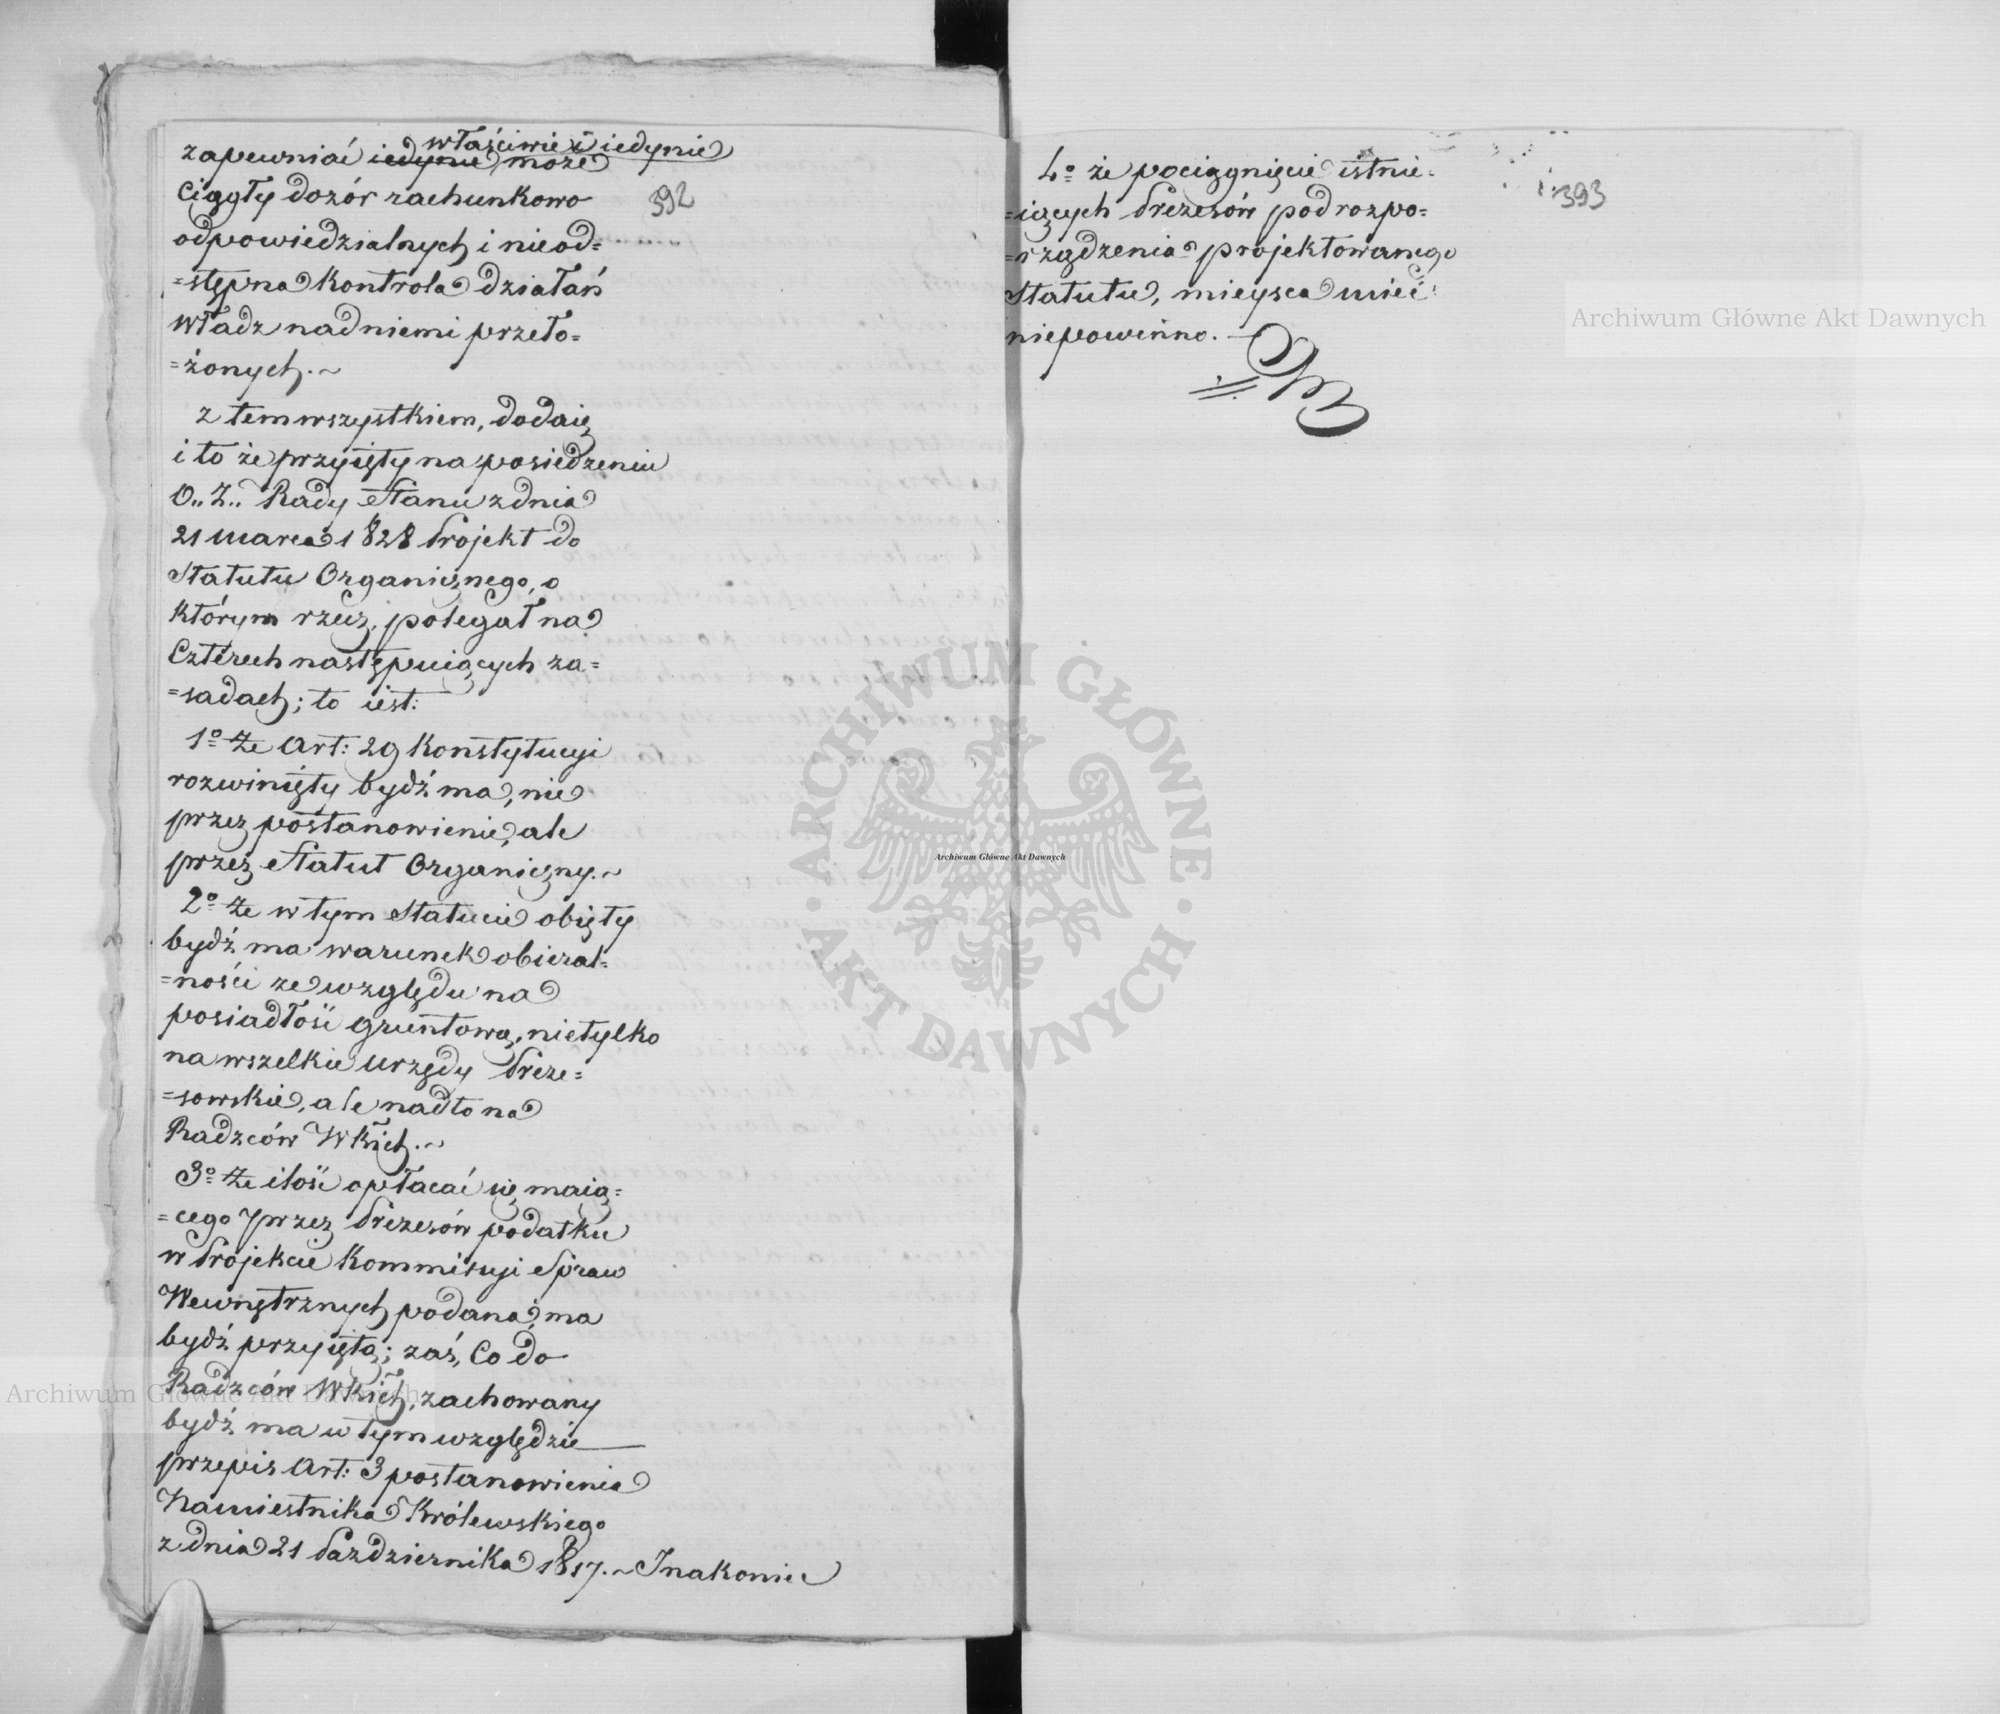 właściwie i iedynie
zapewniać iedynie może
Ciągły dozór rachunkowo
392
odpowiedzialnych i nieod=
=stępna kontrola działań
Władz nad niemi przeło=
=żonych.~
z tem wszystkiem, dodaię
i to że przyięty na posiedzeniu
O.. Z.. Rady Stanu z dnia
21 marca 1828 Projekt do
Statutu Organicznego, o
którym rzecz, polegał na
Czterech następuiących za=
=sadach; to iest:
1º Że Art: 29 Konstytucyi
rozwinięty bydź ma, nie
przez postanowienie, ale
przez Statut Organiczny.~
2º Że w tym Statucie obięty
bydź ma warunek obieral=
=ności ze względu na
posiadłość gruntową, nietylko
na wszelkie urzędy Preze=
=sowskie, ale nadto na
Radzców Wkich.~
3º Że ilość opłacać się maią=
=cego przez Prezesów podatku
w Projekcie Kommissyi Spraw
Wewnętrznych podana, ma
bydź przyięta; zaś, Co do
Radzców Wkich, zachowany
bydź ma w tym względzie
przepis Art: 3 postanowienia
Namiestnika Królewskiego
z dnia 21 Października 1817.~ Inakoniec
4º że pociągnięcie istnie=
=iących Prezesów pod rozpo=
=rządzenia projektowanego
Statutu, mieysca mieć
niepowinno.
393
Archiwum Główne Akt Dawnych
ARCHIWUM GŁÓWNE · AKT DAWNYCH ·
Archiwum Główne Akt Dawnych
Archiwum Główne Akt Dawnych